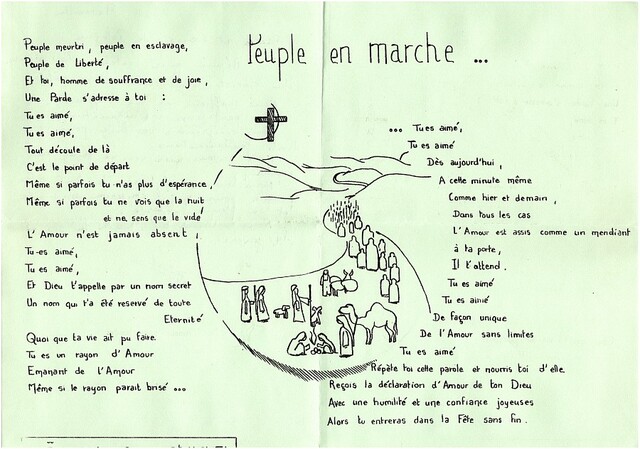 Peuple en marche ...
Peuple meurtri, peuple en esclavage,
Peuple de Liberté,
Et toi, homme de souffrance et de joie,
Une Parole s'adresse à toi :
Tu es aimé,
Tu es aimé,
Tout découle de là
C'est le point de départ
Même si parfois tu n'as plus d'espérance,
Même si parfois tu ne vois que la nuit
et ne sens que le vide
L'Amour n'est jamais absent,
Tu es aimé,
Tu es aimé,
Et Dieu t'appelle par un nom secret
Un nom qui t'a été reservé de toute
Eternité
Quoi que ta vie ait pu faire.
Tu es un rayon d'Amour
Emanant de l'Amour
Même si le rayon parait brisé ...
... Tu es aimé,
Tu es aimé
Dès aujourd'hui,
A cette minute même
Comme hier et demain,
Dans tous les cas
L'Amour est assis comme un mendiant
à ta porte,
Il t'attend.
Tu es aimé
Tu es aimé
De façon unique
De l'Amour sans limites
Tu es aimé
Répète toi cette parole et nourris toi d'elle.
Reçois la déclaration d'Amour de ton Dieu
Avec une humilité et une confiance joyeuses
Alors tu entreras dans la Fête sans fin.